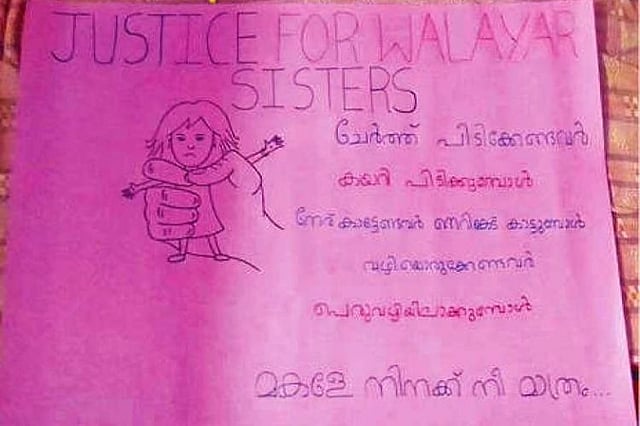 JUSTICE FOR WALAYAR
SISTERS
ചേർത്ത് പിടിക്കേണ്ടവർ
കയറി പിടിക്കുമ്പോൾ
നേര് കാട്ടേണ്ടവർ നെറികേട് കാട്ടുമ്പോൾ
വഴിയൊരുക്കേണ്ടവർ
പെരുവഴിയിലാക്കുമ്പോൾ
മകളേ നിനക്ക് നീ മാത്രം...